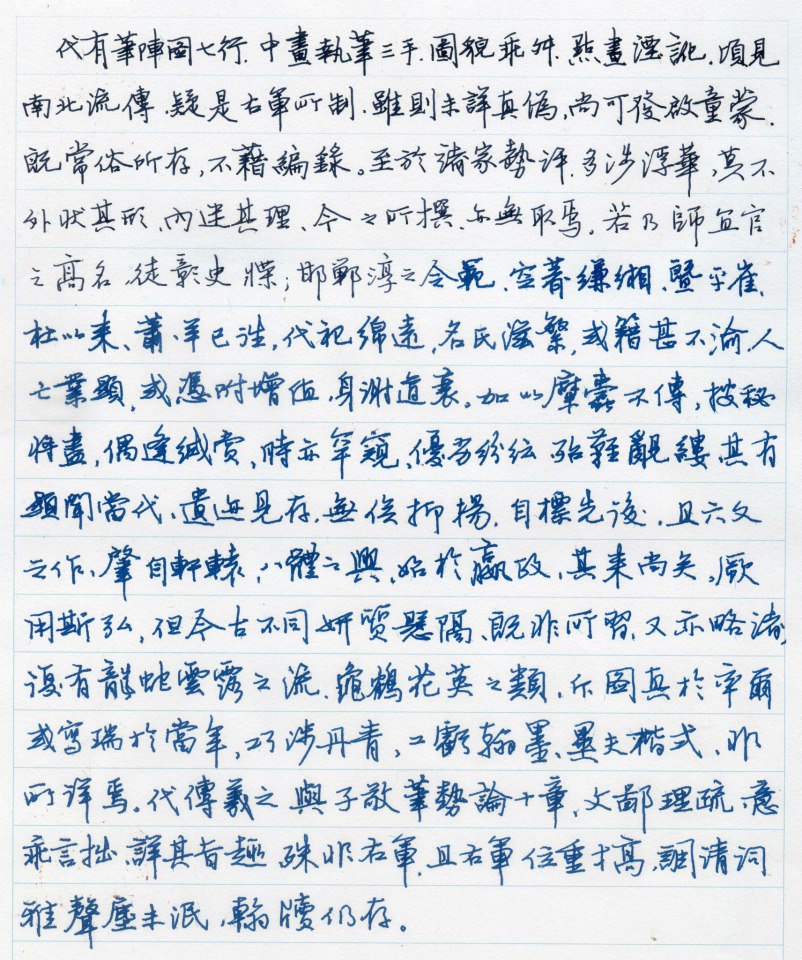 代有筆陣圖七行.中畫執筆三手.圖貌乖舛.點畫湮訛.頃見
南北流傳.疑是右軍所制.雖則未詳真偽,尚可發啟童蒙.
既常俗所存,不藉編錄。至於諸家勢評.多涉浮華,莫不
外狀其形、內迷其理、今之所撰.亦無取焉。若乃師宜官
之高名,徒彰史牒;邯鄲淳之令範,空著縑緗.暨乎崔、
杜以來、蕭、羊已往,代祀綿遠,名氏滋繁,或籍甚不渝,人
亡業顯,或憑附增值,身謝道衰。加以糜蠹不傳,搜秘
將盡,偶逢緘賞,時亦罕窺、優劣紛紜殆難覼縷其有
顯聞當代、遺迹見存.無俟抑揚.自標先後,且六文
之作、肇自軒轅,八體之興,始於嬴政,其來尚矣,厥
用斯弘,但今古不同妍質懸隔、既非所習,又亦略諸,
復有龍蛇雲露之流.龜鶴花英之類,乍圖真於率爾
或寫瑞於當年,巧涉丹青,工虧翰墨、異夫楷式,非
所詳焉。代傳羲之與子敬筆勢論十章,文鄙理疏,意
乖言拙,詳其旨趣殊非右軍.且右軍位重才高,調清詞
雅聲塵未泯,翰牘仍存。